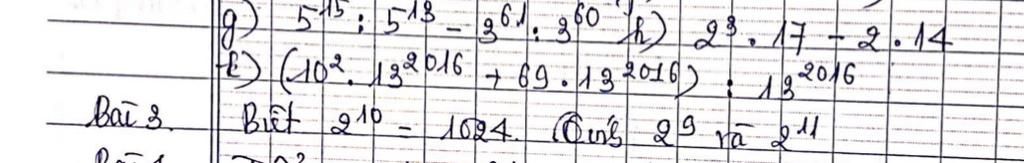 g) 5¹⁵ : 5¹³ - 3⁶¹ : 3⁶⁰ h) 2³ . 17 - 2 . 14
k) (10² . 13²⁰¹⁶ + 69 . 13²⁰¹⁶) : 13²⁰¹⁶
Bài 3. Biết 2¹⁰ = 1024. Tính 2⁹ và 2¹¹